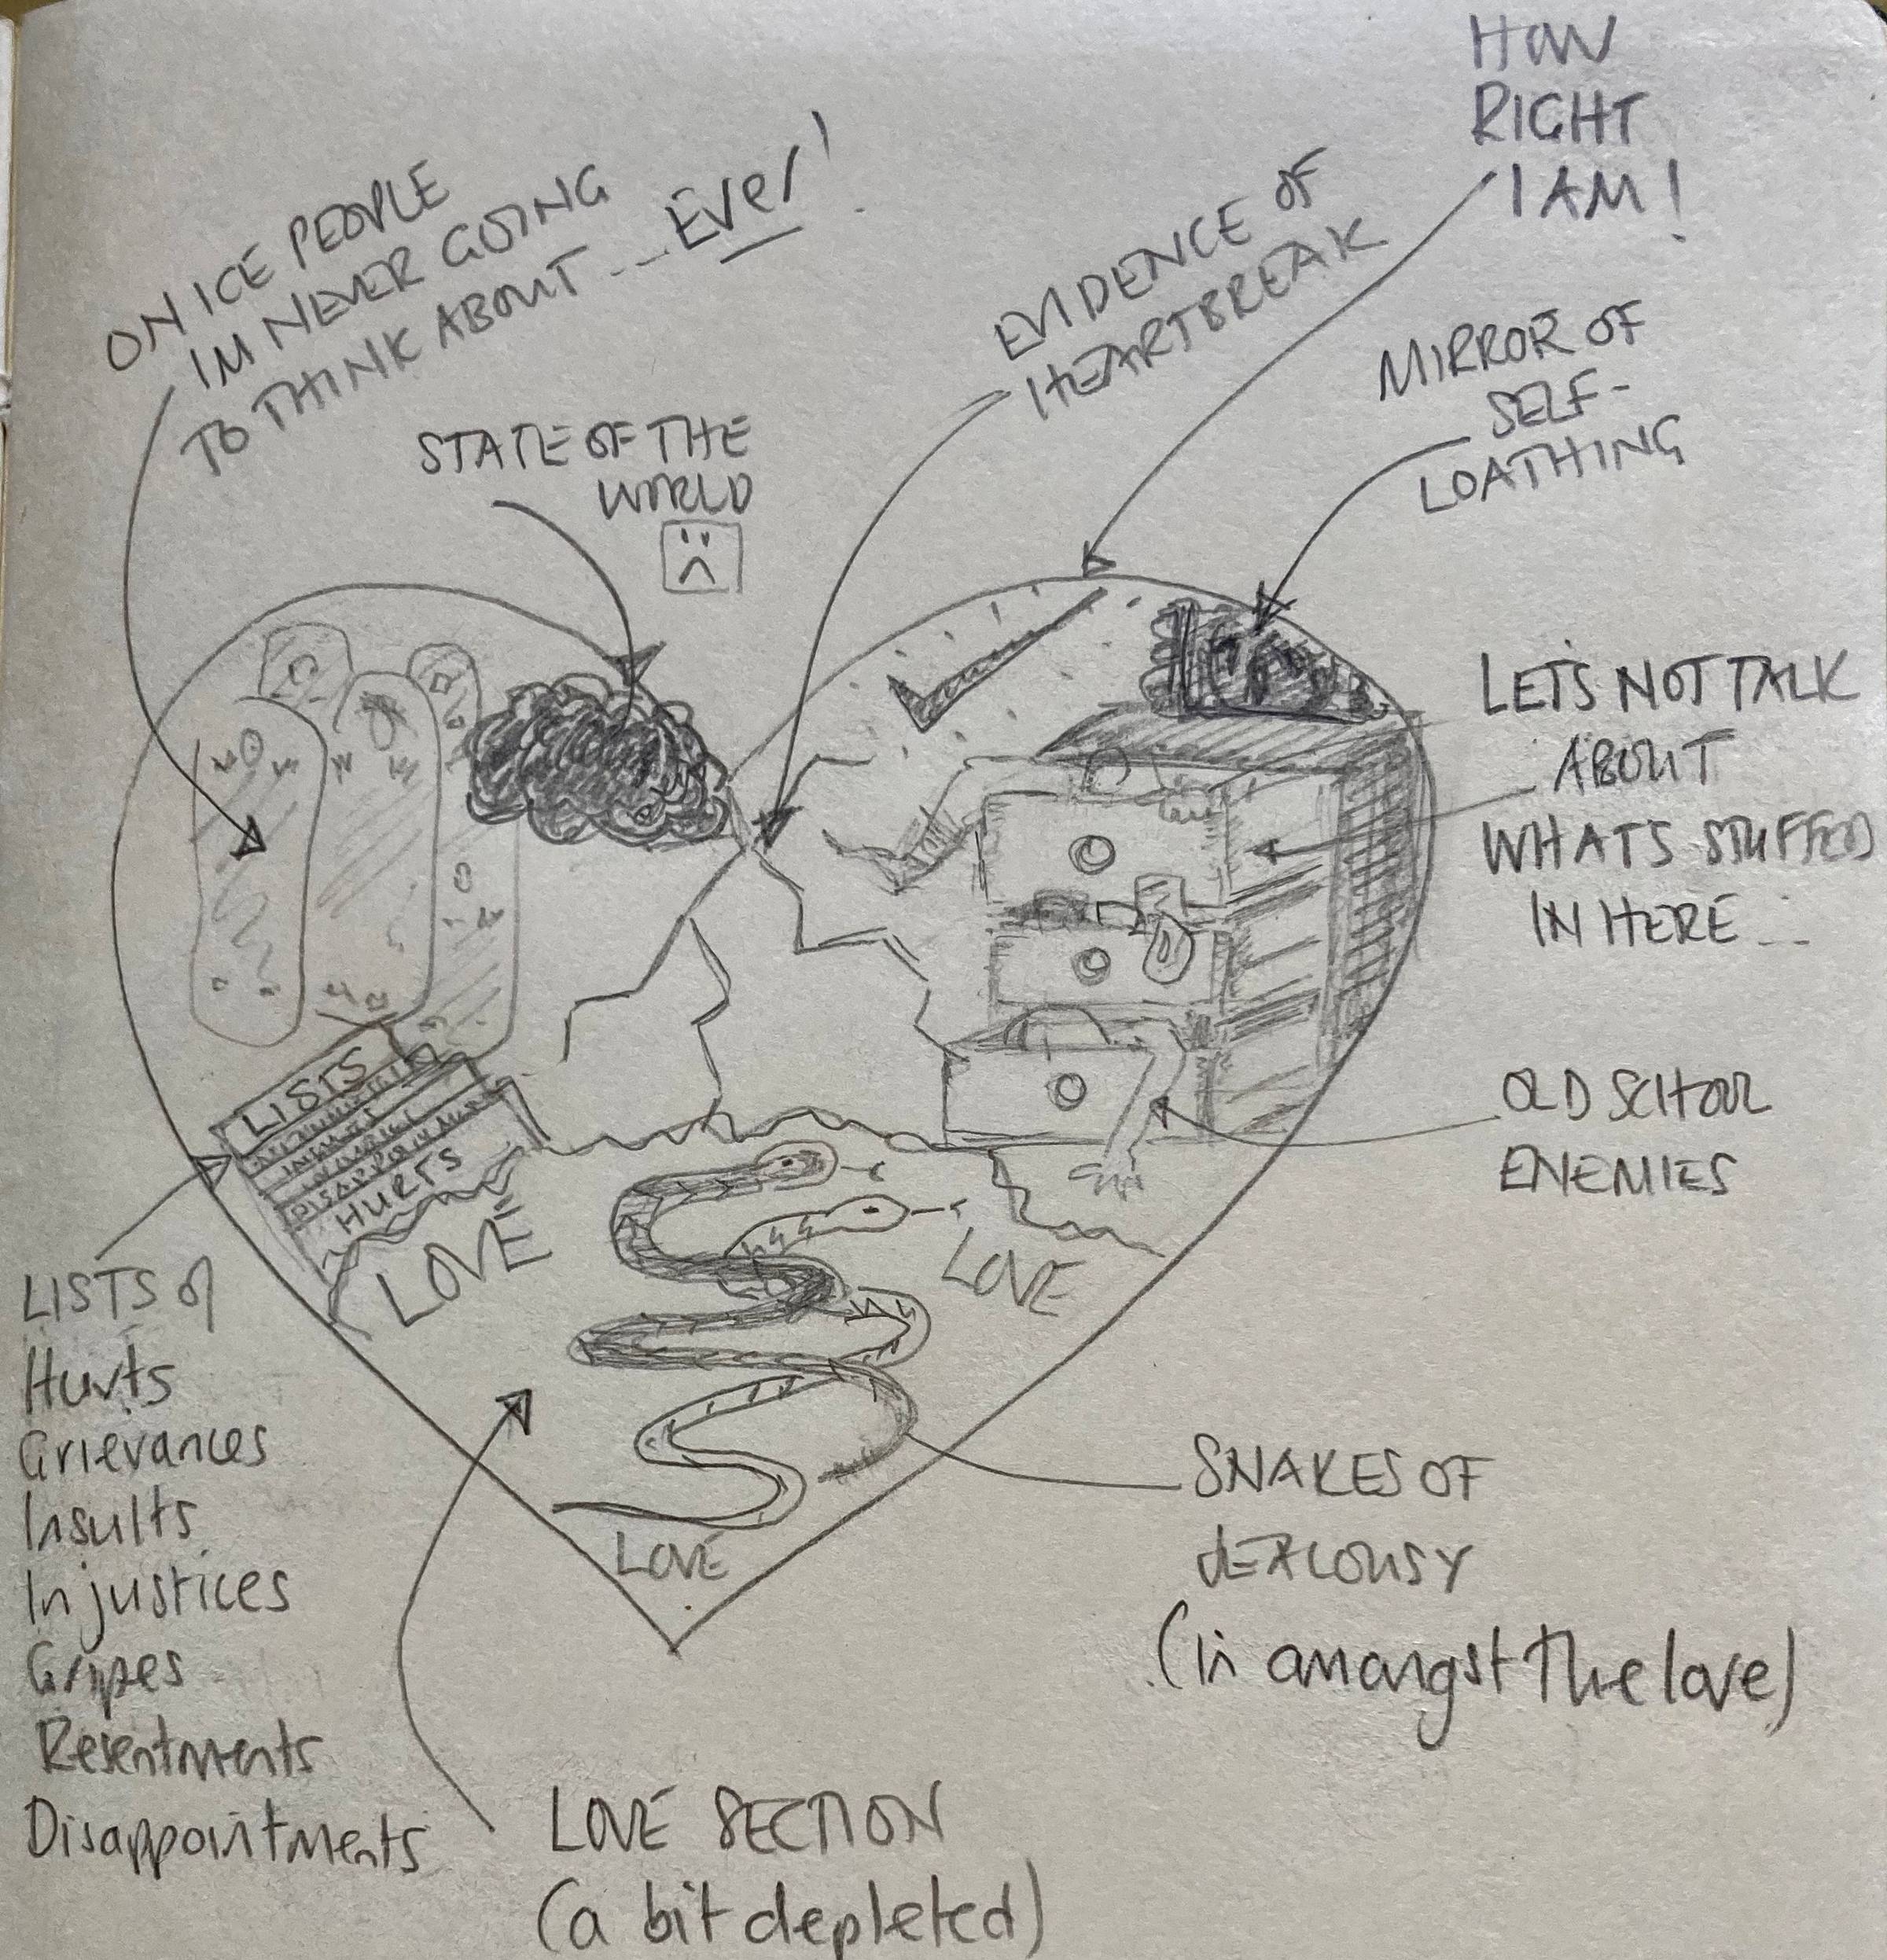 HOW
RIGHT
I AM!
ON ICE PEOPLE
IM NEVER GOING
TO THINK ABOUT --- Ever!
EVIDENCE OF
HEARTBREAK
STATE OF THE
WORLD
MIRROR OF
SELF-
LOATHING
LETS NOT TALK
ABOUT
WHATS STUFFED
IN HERE...
OLD SCHOOL
ENEMIES
LISTS
HURTS
LOVE
LOVE
LOVE
LISTS of
Hurts
Grievances
Insults
Injustices
Gripes
Resentments
Disappointments
SNAKES OF
JEALOUSY
(in amongst the love)
LOVE SECTION
(a bit depleted)